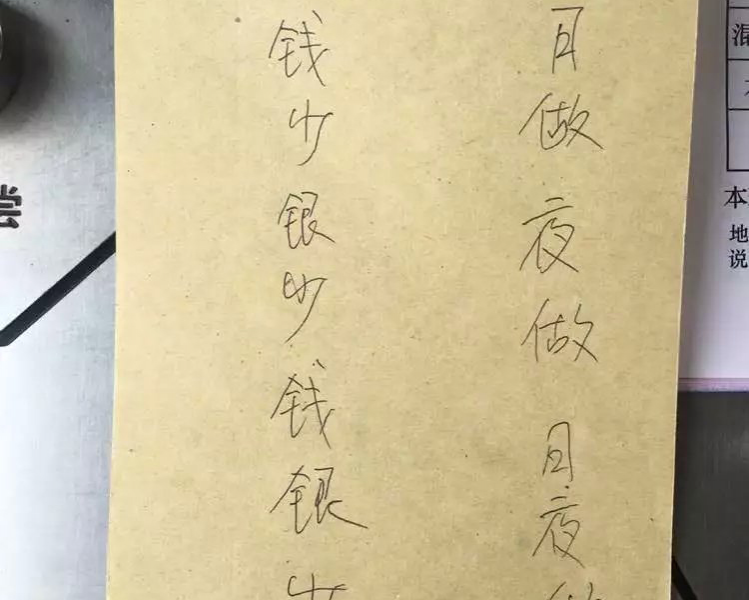 日做夜做日夜
钱少银少钱银少
本
地
说